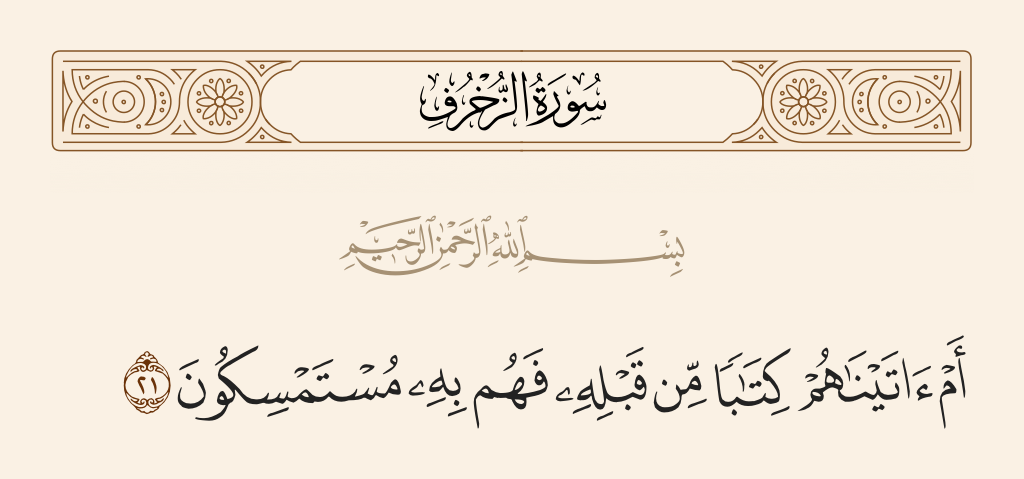 سُورَةُ الزُّخْرُفِ
بِسْمِ ٱللَّهِ ٱلرَّحْمَٰنِ ٱلرَّحِيمِ
أَمْ ءَاتَيْنَٰهُمْ كِتَٰبًا مِّن قَبْلِهِۦ فَهُم بِهِۦ مُسْتَمْسِكُونَ ٢١